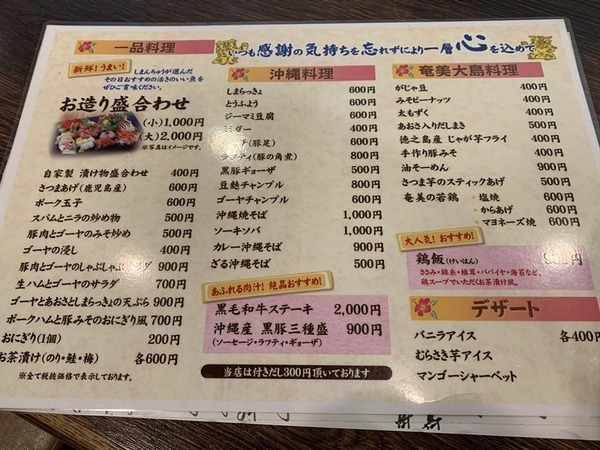 いつも感謝の気持ちを忘れずにより一層心を込めて
一品料理
新鮮!うまい!
しまんちゅうが選んだ
その日おすすめの活きのいい魚を
ぜひご賞味ください。
お造り盛合わせ
(小)1,000円
(大)2,000円
※写真はイメージです。
自家製 漬け物盛合わせ 400円
さつまあげ(鹿児島産) 600円
ポーク玉子 600円
スパムとニラの炒め物 500円
豚肉とゴーヤのみそ炒め 500円
ゴーヤの浸し 400円
豚肉とゴーヤのしゃぶしゃぶサラダ 900円
生ハムとゴーヤのサラダ 700円
ゴーヤとあおさとしまらっきょの天ぷら 900円
ポークハムと豚みそのおにぎり風 700円
おにぎり(1個) 200円
お茶漬け(のり・鮭・梅) 各600円
※全て税抜価格で表示しております。
沖縄料理
しまらっきょ 600円
とうふよう 600円
ジーマミ豆腐 600円
ミミガー 400円
(豚足) 400円
ラフティ(豚の角煮) 800円
黒豚ギョーザ 500円
豆麩チャンプル 800円
ゴーヤチャンプル 800円
沖縄焼そば 1,000円
ソーキソバ 1,000円
カレー沖縄そば 900円
ざる沖縄そば 500円
あふれる肉汁!絶品おすすめ!
黒毛和牛ステーキ 2,000円
沖縄産 黒豚三種盛 900円
(ソーセージ・ラフティ・ギョーザ)
当店は付きだし300円頂いております
奄美大島料理
がじゃ豆 400円
みそピーナッツ 400円
太もずく 400円
あおさ入りだしまき 500円
徳之島産 じゃが芋フライ 400円
手作り豚みそ 400円
油そーめん 900円
さつま芋のスティックあげ 500円
奄美の若鶏 ・塩焼 600円
・からあげ 600円
・マヨネーズ焼 600円
大人気!おすすめ!
鶏飯(けいはん)
ささみ・錦糸・椎茸・パパイヤ・海苔など、
鶏スープでいただくお茶漬け風。
デザート
バニラアイス 各400円
むらさき芋アイス
マンゴーシャーベット